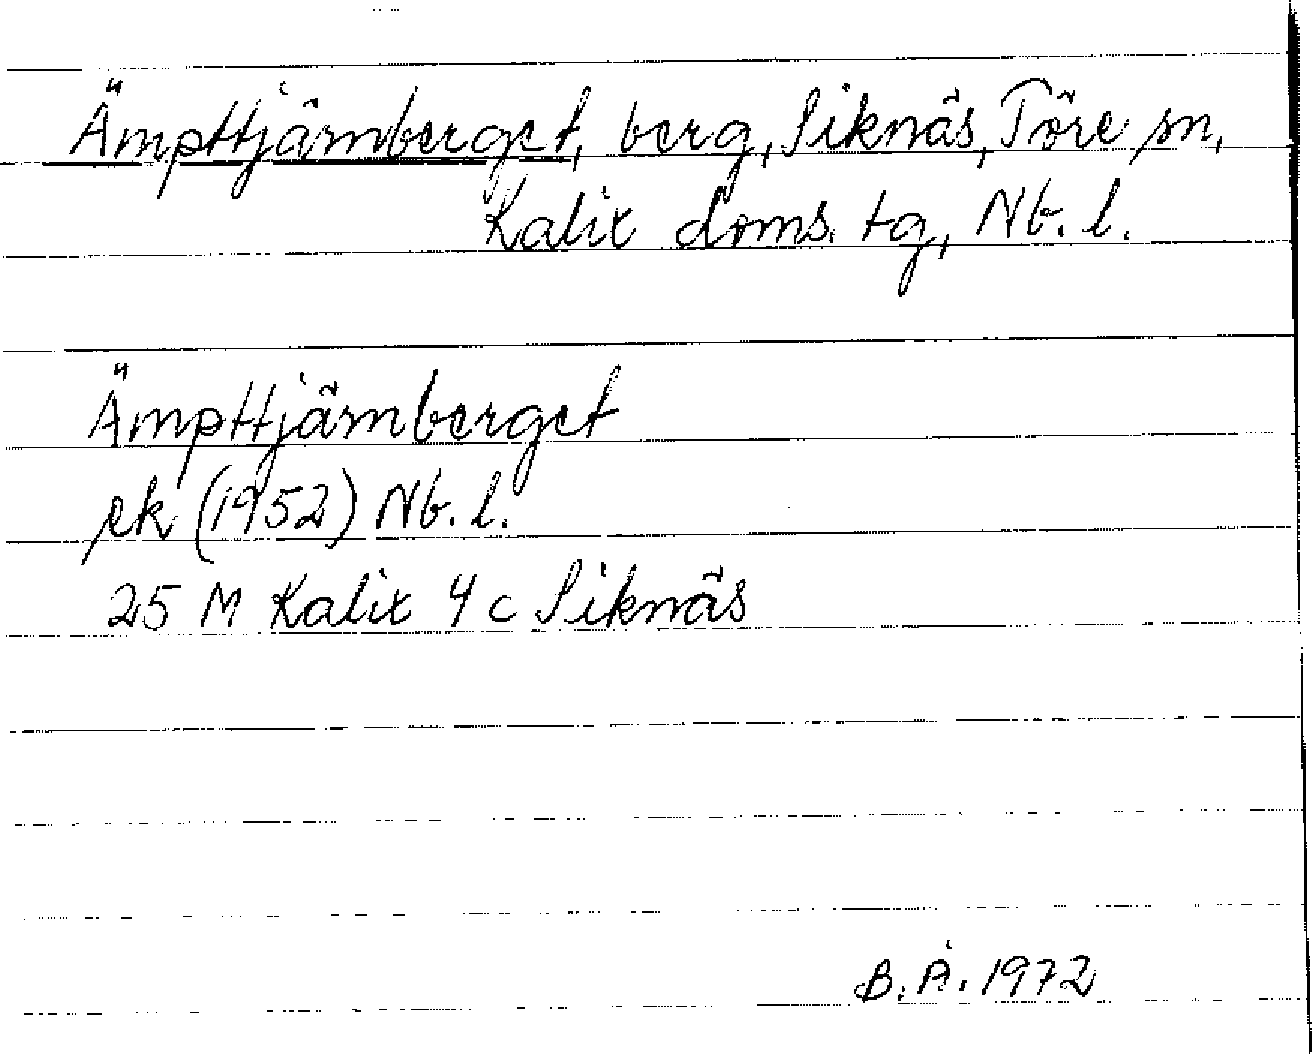 Ämpttjärnberget, berg, Siknäs, Töre sn,
Kalix doms. tg, Nb. l.
Ämpttjärnberget
ek (1952) Nb. l.
25 M Kalix 4 c Siknäs
B. Å. 1972